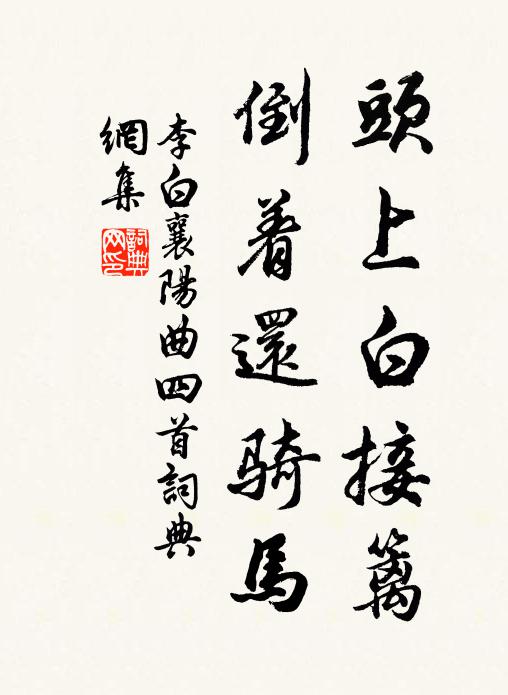 頭上白接籬
倒着還騎馬
李白襄陽曲四首詞典
網集
詞典
网印